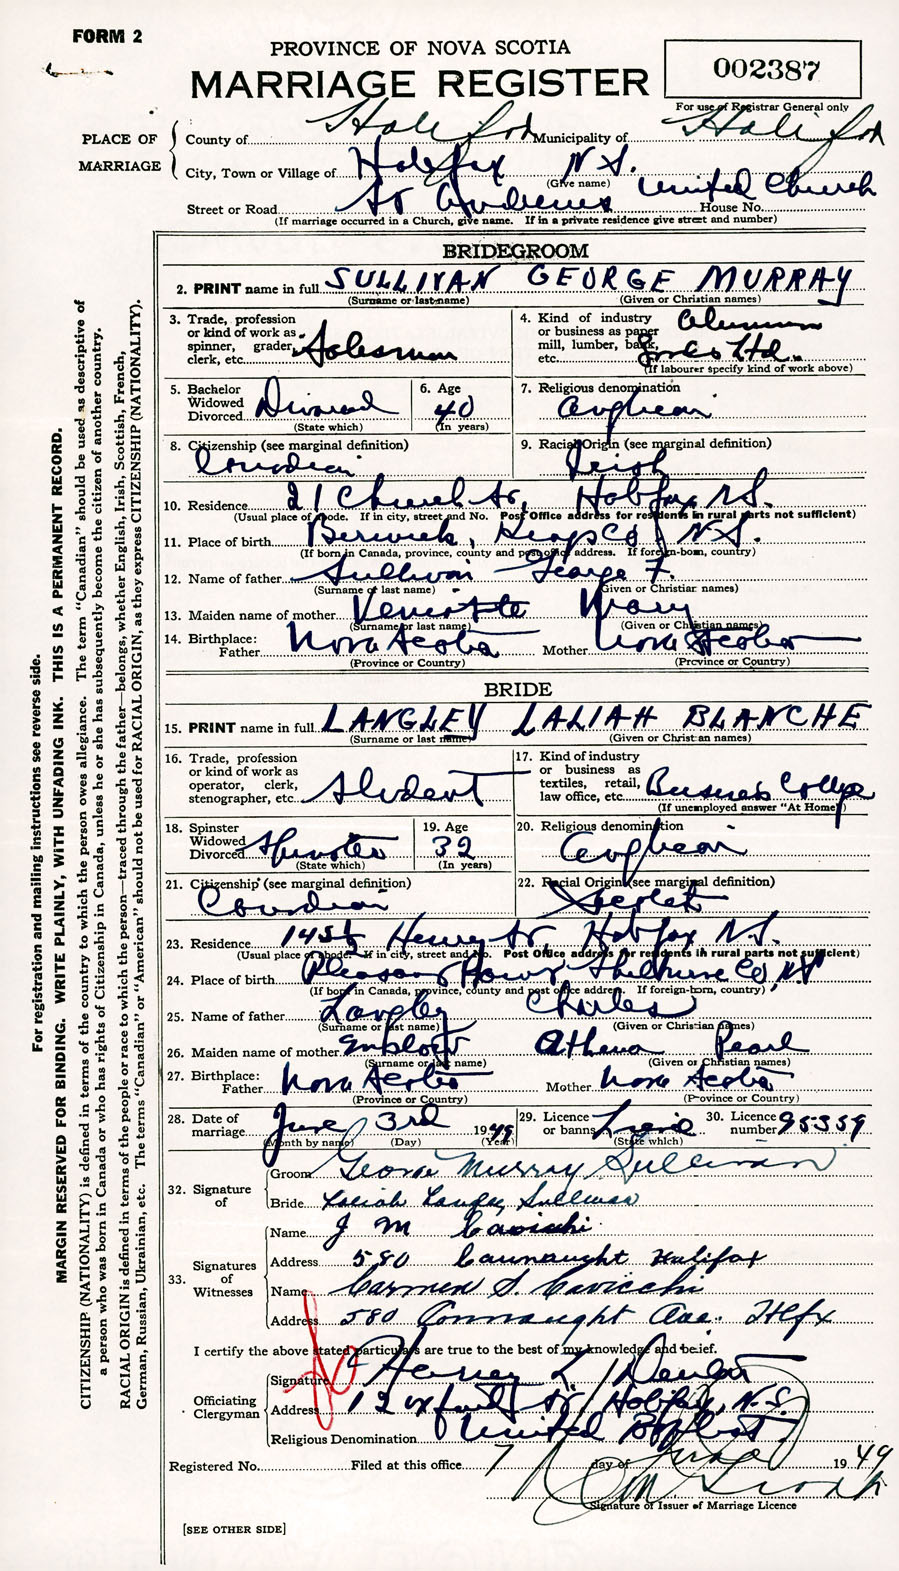 FORM 2
PROVINCE OF NOVA SCOTIA
MARRIAGE REGISTER
002387
For use of Registrar General only
PLACE OF MARRIAGE
County of Halifax Municipality of Halifax
City, Town or Village of Halifax N.S.
(Give name)
Street or Road St Andrews United Church House No.
(If marriage occurred in a Church, give name. If in a private residence give street and number)
BRIDEGROOM
2. PRINT name in full SULLIVAN GEORGE MURRAY
(Surname or last name) (Given or Christian names)
3. Trade, profession or kind of work as spinner, grader, clerk, etc. Salesman
4. Kind of industry or business as paper mill, lumber, bank, etc. Ltd.
(If labourer specify kind of work above)
5. Bachelor Widowed Divorced Divorced
(State which)
6. Age 40
(In years)
7. Religious denomination Anglican
8. Citizenship (see marginal definition) Canadian
9. Racial Origin (see marginal definition) Irish
10. Residence 21 Church St, Halifax N.S.
(Usual place of abode. If in city, street and No. Post Office address for residents in rural parts not sufficient)
11. Place of birth Berwick, Kings Co N.S.
(If born in Canada, province, county and post office address. If foreign-born, country)
12. Name of father Sullivan George F.
(Surname or last name) (Given or Christian names)
13. Maiden name of mother Mary
(Surname or last name) (Given or Christian names)
14. Birthplace: Father Nova Scotia Mother Nova Scotia
(Province or Country) (Province or Country)
BRIDE
15. PRINT name in full LANGLEY LALIAH BLANCHE
(Surname or last name) (Given or Christian names)
16. Trade, profession or kind of work as operator, clerk, stenographer, etc. Student
17. Kind of industry or business as textiles, retail, law office, etc. Business College
(If unemployed answer "At Home")
18. Spinster Widowed Divorced Spinster
(State which)
19. Age 32
(In years)
20. Religious denomination Anglican
21. Citizenship (see marginal definition) Canadian
22. Racial Origin (see marginal definition)
23. Residence Henry St Halifax N.S.
(Usual place of abode. If in city, street and No. Post Office address for residents in rural parts not sufficient)
24. Place of birth Pleasant Shelburne Co, NS
(If born in Canada, province, county and post office address. If foreign-born, country)
25. Name of father Langley Charles
(Surname or last name) (Given or Christian names)
26. Maiden name of mother Athena Pearl
(Surname or last name) (Given or Christian names)
27. Birthplace: Father Nova Scotia Mother Nova Scotia
(Province or Country) (Province or Country)
28. Date of marriage June 3rd 1949
(Month by name) (Day) (Year)
29. Licence or banns
(State which)
30. Licence number 95359
32. Signature of
Groom George Murray Sullivan
Bride Laliah Sullivan
33. Signatures of Witnesses
Name J M Cavicchi
Address 580 Connaught Halifax
Name Carmen S. Cavicchi
Address 580 Connaught Ave. Hlfx
I certify the above stated particulars are true to the best of my knowledge and belief.
Officiating Clergyman
Signature Harvey L Denton
Address Halifax, N.S.
Religious Denomination United Baptist
Registered No. Filed at this office 7 day of June 1949
Signature of Issuer of Marriage Licence
[SEE OTHER SIDE]
For registration and mailing instructions see reverse side.
MARGIN RESERVED FOR BINDING. WRITE PLAINLY, WITH UNFADING INK. THIS IS A PERMANENT RECORD.
CITIZENSHIP (NATIONALITY) is defined in terms of the country to which the person owes allegiance. The term "Canadian" should be used as descriptive of
a person who was born in Canada or who has rights of Citizenship in Canada, unless he or she has subsequently become the citizen of another country.
RACIAL ORIGIN is defined in terms of the people or race to which the person—traced through the father—belongs, whether English, Irish, Scottish, French,
German, Russian, Ukrainian, etc. The terms "Canadian" or "American" should not be used for RACIAL ORIGIN, as they express CITIZENSHIP (NATIONALITY).